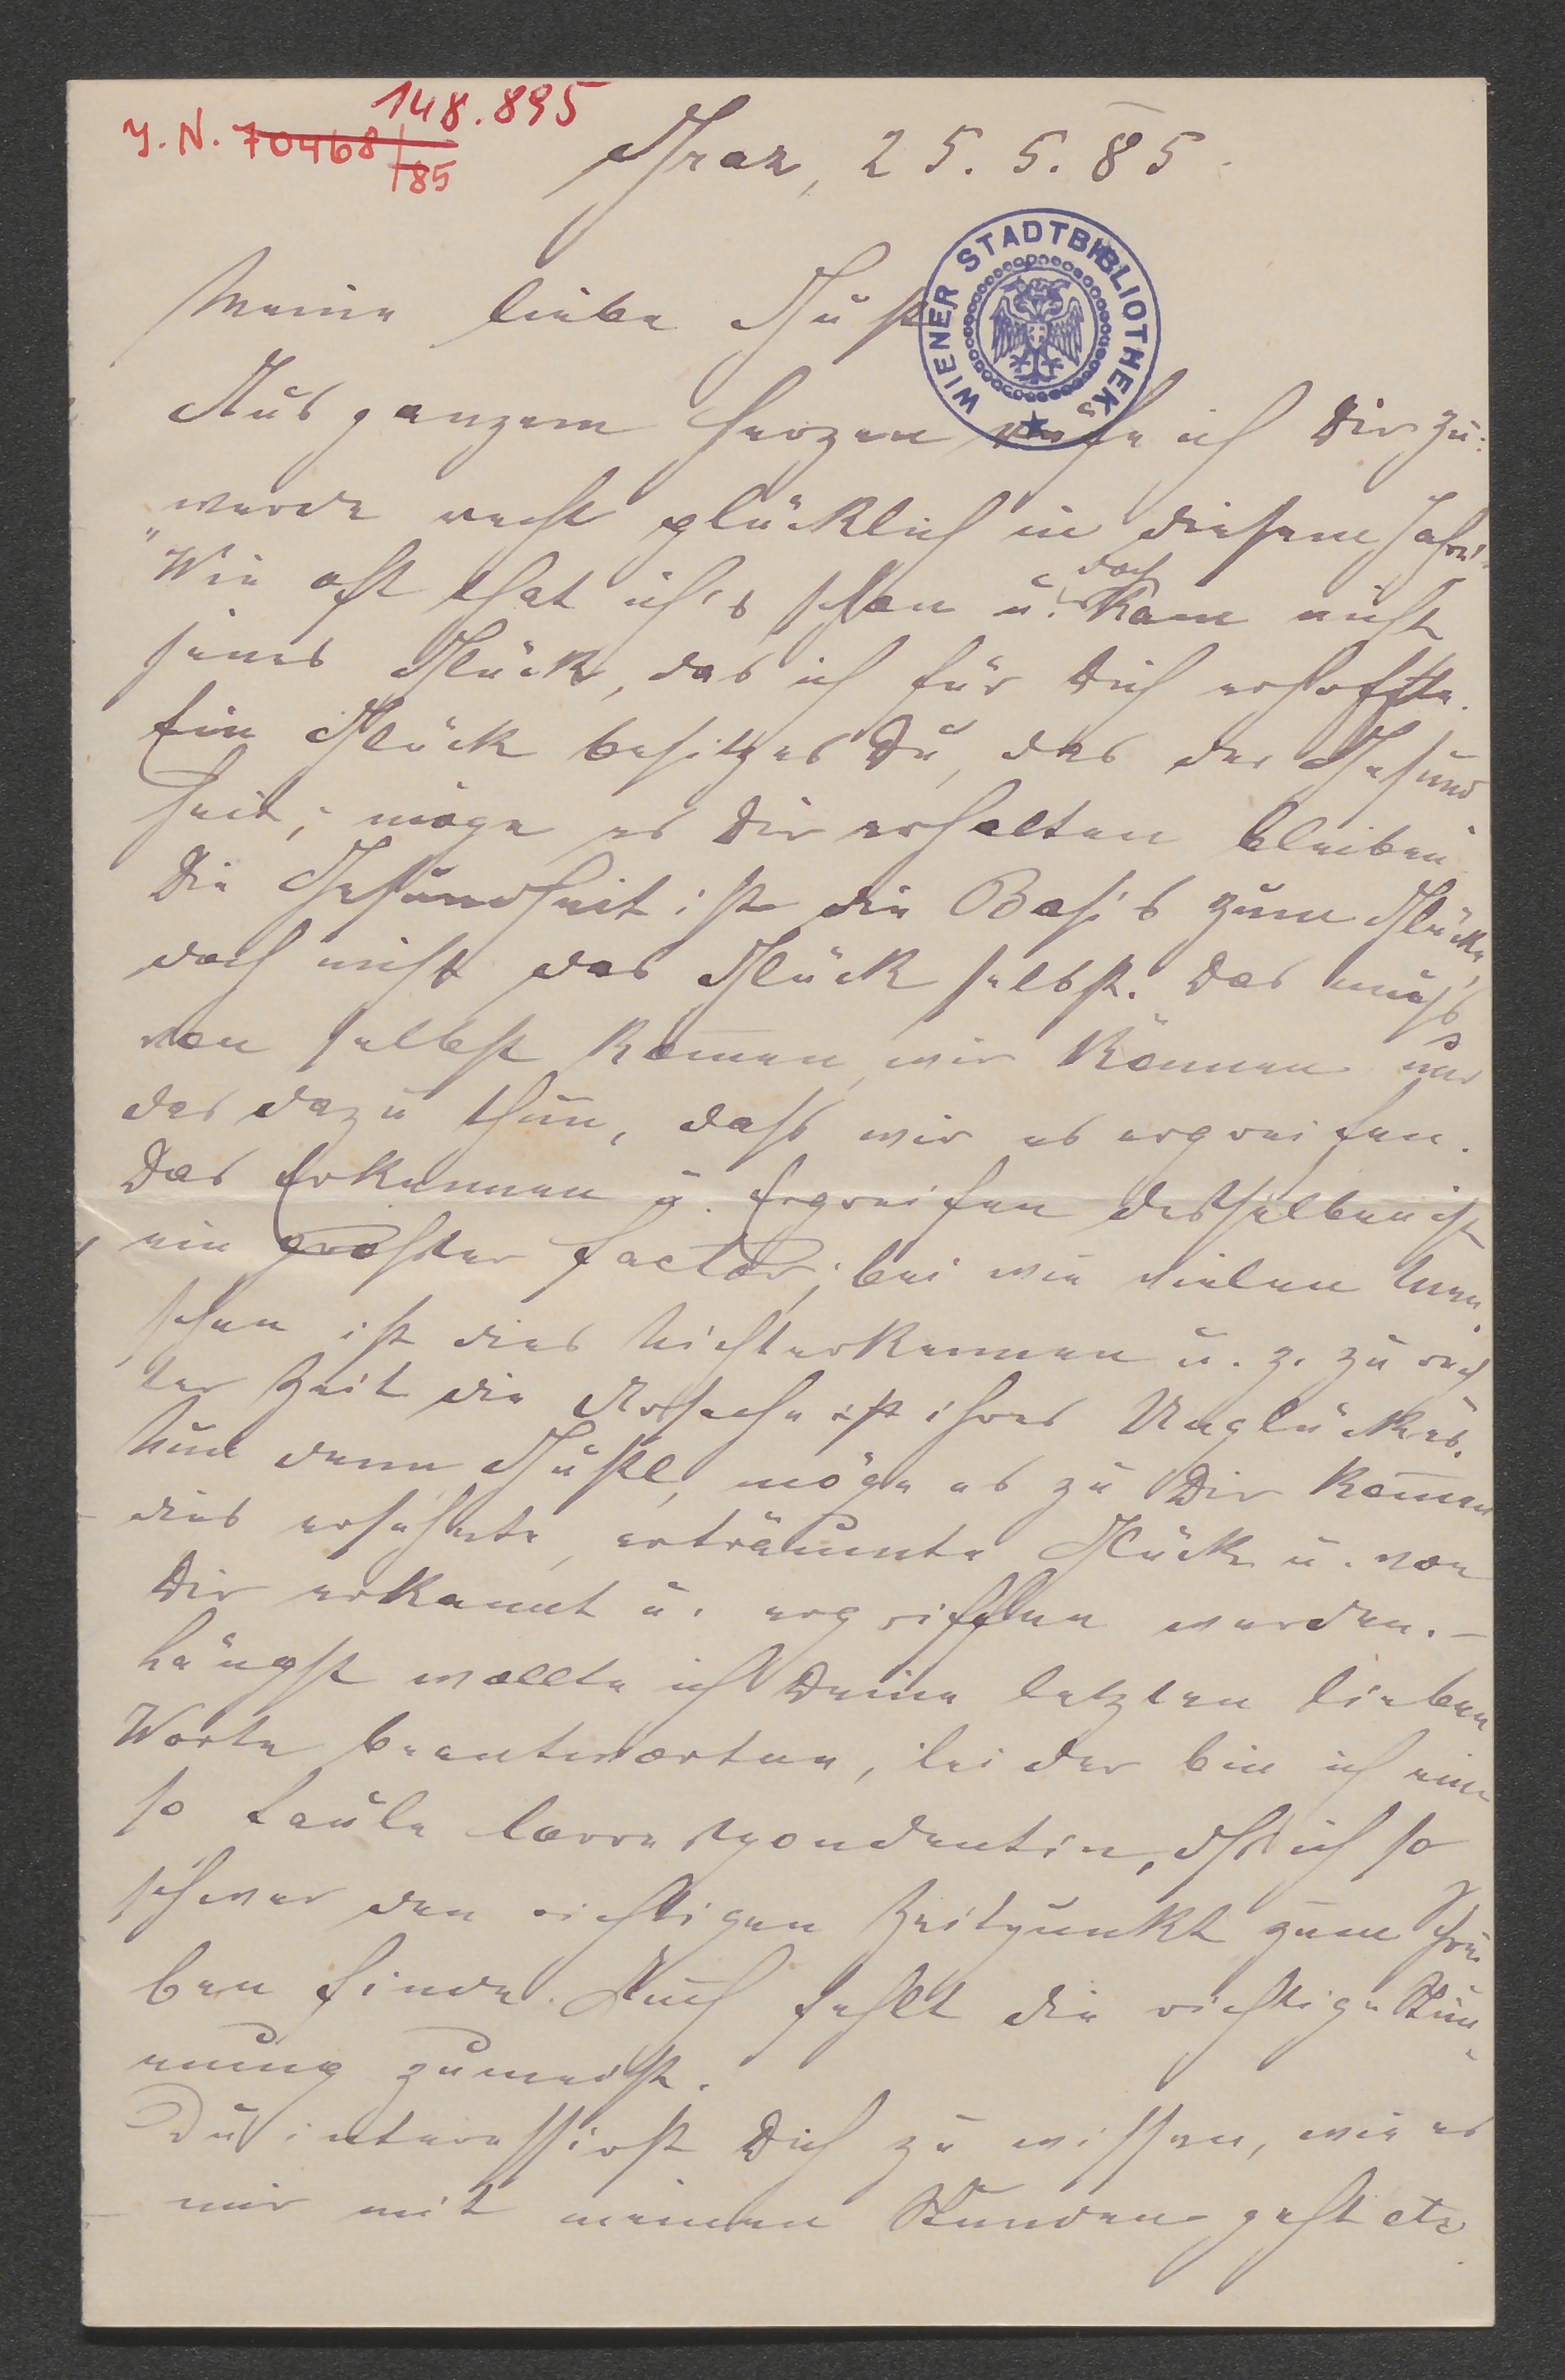 148.895
J. N. 70468/85
Graz, 25. 5. 85.
WIENER STADTBIBLIOTHEK
Meine liebe Gust
Aus ganzem Herzen rufe ich Dir zu:
„werde recht glücklich in diesem Jahre!"
Wie oft that ich's schon u. doch kam nicht
jenes Glück, das ich für Dich erhoffte.
Ein Glück besitzes Du, das der Gesund
heit; möge es Dir erhalten bleiben
Die Gesundheit ist die Basis zum Glücke,
doch nicht das Glück selbst. Das muß
von selbst kom̄en, wir können nur
das dazu thun, daß wir es ergreifen.
Das Erkennen u. Ergreifen desselben ist
ein großer Factor; bei wie vielen Men-
schen ist dies Nichterkennen u. z. zu rech
ter Zeit die Ursache ist ihres Unglückes.
Nun denn Gustl, möge es zu Dir kom̄en
dies ersehnte, erträumte Glück u. von
Dir erkannt u. ergriffen werden. –
Längst wollte ich Deine letzten lieben
Worte beantworten, leider bin ich eine
so faule Correspondentin, dß ich so
schwer den richtigen Zeitpunkt zum Schrei
ben finde. Auch fehlt die richtige Stim-
mung zumeist.
Du interessirst Dich zu wissen, wie es
mir mit meinen Stunden geht etc.